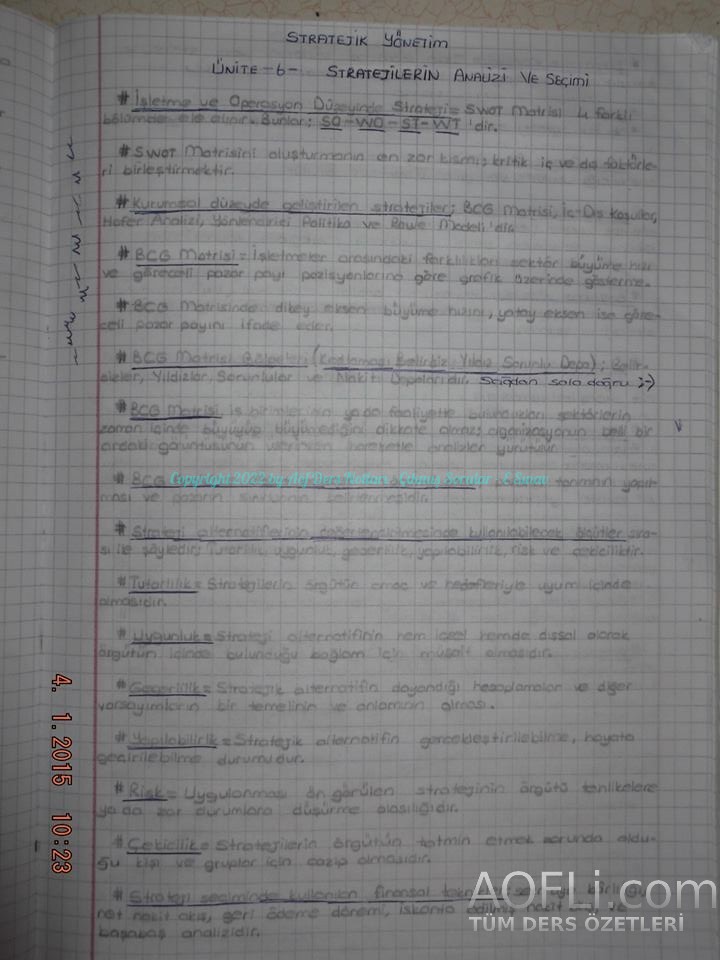 STRATEJİK YÖNETİM
ÜNİTE-6- STRATEJİLERİN ANALİZİ VE SEÇİMİ
# İşletme ve Operasyon Düzeyinde Strateji= SWOT Matrisi 4 farklı
bölümden ele alınır. Bunlar; SO-WO-ST-WT'dir.
# SWOT Matrisini oluşturmanın en zor kısmı; kritik iç ve dış faktörle-
ri birleştirmektir.
# Kurumsal düzeyde geliştirilen stratejiler; BCG Matrisi, İç-Dış Koşullar,
Hofer Analizi, Yönlendirici Politika ve Rowe Modeli'dir.
# BCG Matrisi= İşletmeler arasındaki farklılıkları sektör büyüme hızı
ve göreceli pazar payı pozisyonlarına göre grafik üzerinde gösterme.
# BCG Matrisinde dikey eksen büyüme hızını, yatay eksen ise göre-
celi pazar payını ifade eder.
# BCG Matrisi Bölgeleri ( Yıldız Sorunlu Depo);
Yıldızlar, Sorunlular ve Nakit Depolarıdır. Sağdan sola doğru ;-)
# BCG Matrisi iş birimlerinin ya da faaliyette bulundukları sektörlerin
zaman içinde büyüyüp büyümediğini dikkate almaz, organizasyonun belli bir
andaki görüntüsünün üzerinden hareketle analizler yürütür.
# BCG tanımın yapıl-
ması ve pazarın sınırlarının belirlenmesidir.
Copyright 2022 by
# Strateji alternatiflerinin değerlendirilmesinde kullanılabilecek ölçütler sıra-
sı ile şöyledir; Tutarlılık, uygunluk, geçerlilik, yapılabilirlik, risk ve çekiciliktir.
# Tutarlılık= Stratejilerin örgütün amaç ve hedefleriyle uyum içinde
olmasıdır.
# Uygunluk= Strateji alternatifinin hem içsel hemde dışsal olarak
örgütün içinde bulunduğu bağlam için müsait olmasıdır.
# Geçerlilik= Stratejik alternatifin dayandığı hesaplamalar ve diğer
varsayımların bir temelinin ve anlamının olması.
# Yapılabilirlik= Stratejik alternatifin gerçekleştirilebilme, hayata
geçirilebilme durumudur.
# Risk= Uygulanması ön görülen stratejinin örgütü tehlikelere
ya da zor durumlara düşürme olasılığıdır.
# Çekicilik= Stratejilerin örgütün tatmin etmek zorunda oldu-
ğu kişi ve gruplar için cazip olmasıdır.
# Strateji seçiminde kullanılan finansal
net nakit akış, geri ödeme dönemi, iskonto edilmiş nakit ve
başabaş analizidir.
4. 1.2015 10:23
AOFLi.com
TÜM DERS ÖZETLERİ